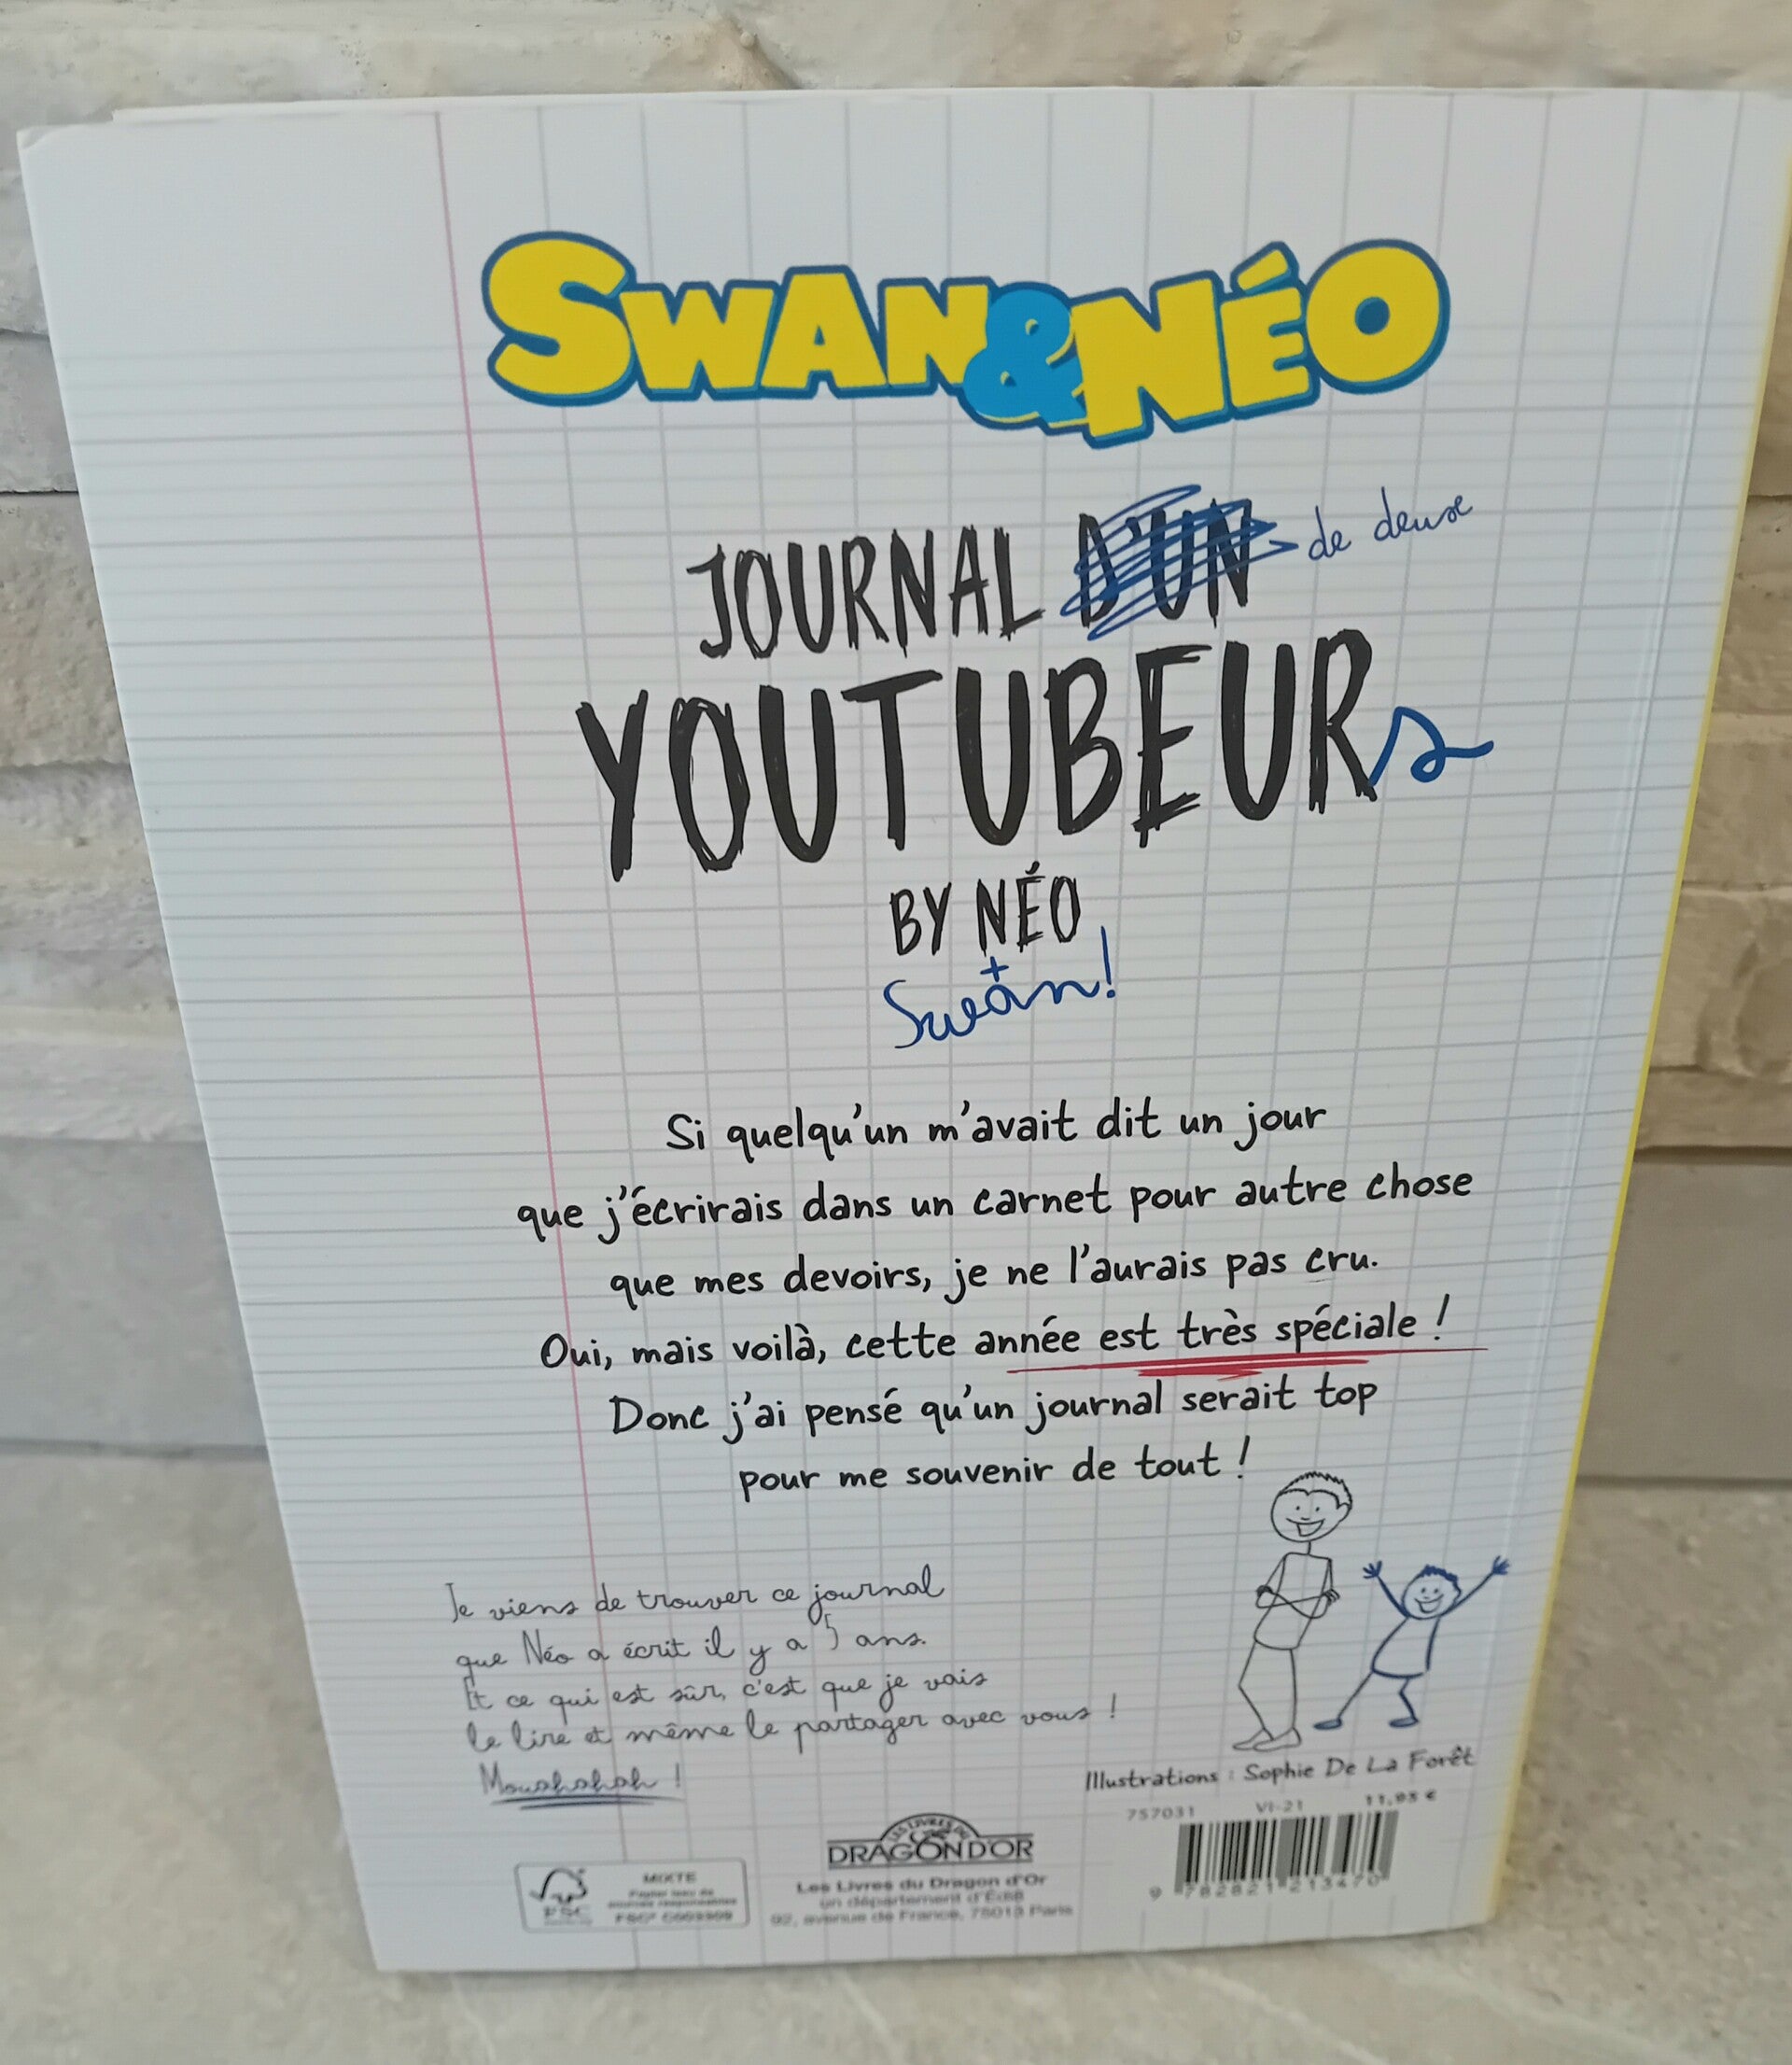 SWAN&NÉO
JOURNAL D'UN de deux
YOUTUBEURs
BY NÉO
+
Swan!
Si quelqu'un m'avait dit un jour
que j'écrirais dans un carnet pour autre chose
que mes devoirs, je ne l'aurais pas cru.
Oui, mais voilà, cette année est très spéciale !
Donc j'ai pensé qu'un journal serait top
pour me souvenir de tout !
Je viens de trouver ce journal
que Néo a écrit il y a 5 ans.
Et ce qui est sûr, c'est que je vais
le lire et même le partager avec vous !
Mouahahah !
Illustrations : Sophie De La Forêt
757031 VI-21 11,95 €
9 782821 213470
LES LIVRES DU
DRAGON D'OR
Les Livres du Dragon d'Or
un département d'Édi8
92, avenue de France, 75013 Paris
MIXTE
Papier issu de
sources responsables
FSC